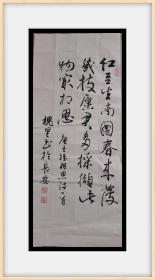 红豆生南国春来发
几枝愿君多采撷此
物最相思 唐王维相思诗一首
槐里 书于长安